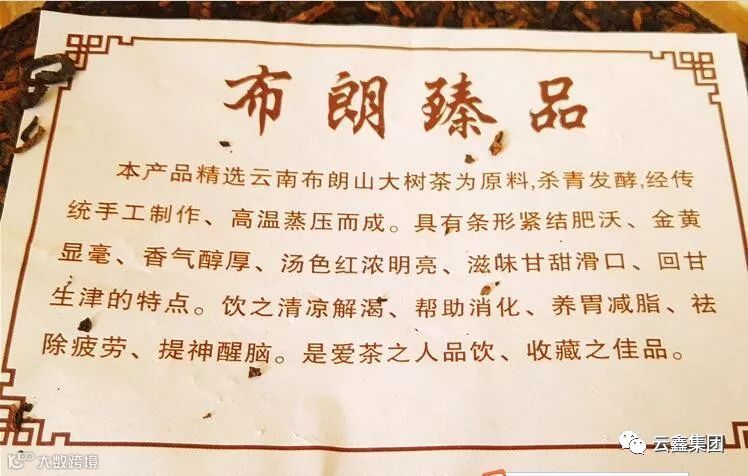 布朗臻品
本产品精选云南布朗山大树茶为原料,杀青发酵,经传
统手工制作、高温蒸压而成。具有条形紧结肥沃、金黄
显毫、香气醇厚、汤色红浓明亮、滋味甘甜滑口、回甘
生津的特点。饮之清凉解渴、帮助消化、养胃减脂、祛
除疲劳、提神醒脑。是爱茶之人品饮、收藏之佳品。
云鑫集团
10100 大数跨境